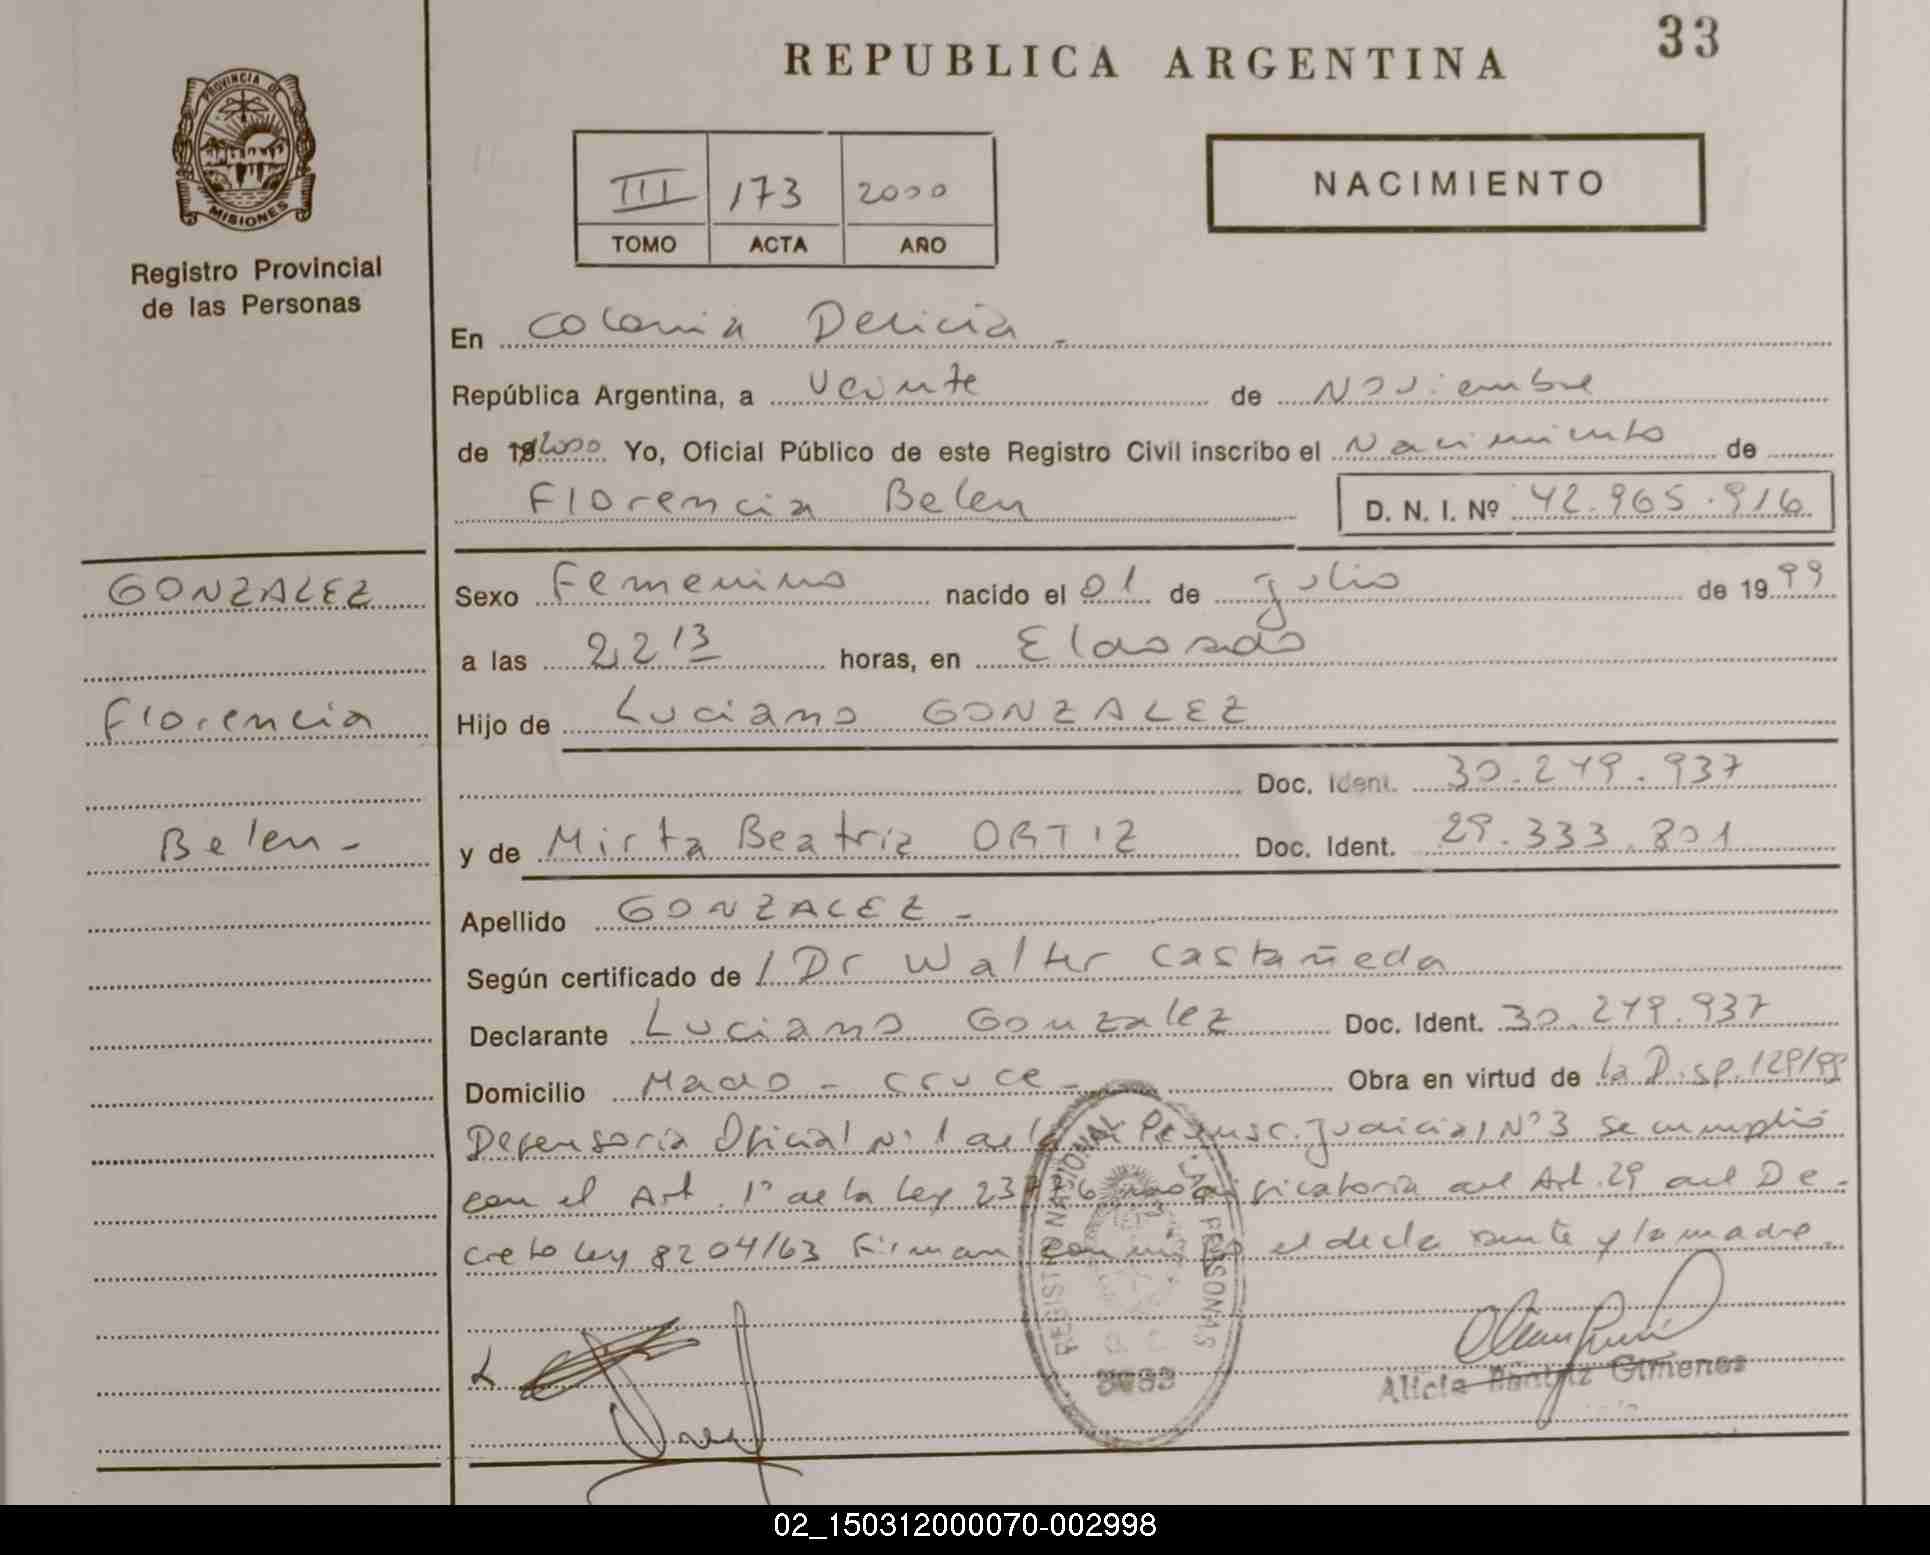 33
REPUBLICA ARGENTINA
PROVINCIA DE
MISIONES
Registro Provincial
de las Personas
III 173 2000
TOMO ACTA AÑO
NACIMIENTO
En Colonia Delicia -
República Argentina, a Veinte de Noviembre
de 19 2000 Yo, Oficial Público de este Registro Civil inscribo el Nacimiento de
Florencia Belen D. N. I. Nº 42.965.916
GONZALEZ
Florencia
Belen -
Sexo Femenino nacido el 01 de julio de 1999
a las 22 13 horas, en Eldorado
Hijo de Luciano GONZALEZ
Doc. Ident. 30.249.937
y de Mirta Beatriz ORTIZ Doc. Ident. 29.333.801
Apellido GONZALEZ -
Según certificado de / Dr Walter Castañeda
Declarante Luciano Gonzalez Doc. Ident. 30.249.937
Domicilio Mado - cruce - Obra en virtud de la Disp. 129/99
Defensoria Oficial Nº 1 de la Judicial Nº 3 se cumplió
con el Art. 1º de la Ley 23776 modificatoria del Art. 29 del De-
creto Ley 8204/63 Firman conmigo el declarante y la madre.
REGISTRO NACIONAL DE LAS PERSONAS
Alicia Beatriz Gimenes
02_150312000070-002998